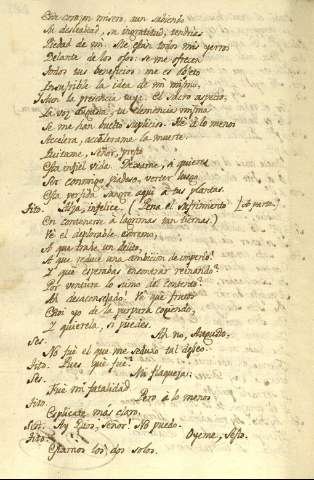 Este corazon misero, aun sabiendo
Su deslealtad, su ingratitud, tendrias
Piedad de mi. Me estan todos mis yerros
Delante de los ojos: se me ofrecen
Todos tus beneficios: me es objeto
Insufrible la idea de mi mismo,
I aun la presencia tuya. El sacro aspecto,
La voz augusta, tu clemencia misma
Se me han buelto suplicios. Ha a lo menos
Accelera, accelerame la muerte.
Quitame, Señor, presto
Esta infiel vida. Dexame, si quieres
Ser conmigo piadoso, verter luego
Esta perfida sangre aqui a tus plantas.
Tito. Alza, infelice. (Pena el sufrimiento) [A parte.]
En contenerse a lagrimas tan tiernas.)
Vé el deplorable extremo,
A que trahe un delito,
A que reduce una ambicion de imperio!
Y qué esperabas encontrar reinando?
Por ventura lo sumo del contento?
Ah desaconsejado! Vé que frutos
Estoi yo de la purpura cogiendo,
Y quierela, si puedes.
Ses. Ah no, Augusto,
No fué el que me seduxo tal deseo.
Tito. Pues, qué fue?
Ses. Mi flaqueza:
Fué mi fatalidad.
Tito. Pero a lo menos
Explicate mas claro.
Sest. Ay Dios, Señor! No puedo.
Tito. Oyeme, Sesto.
Estamos los dos solos.